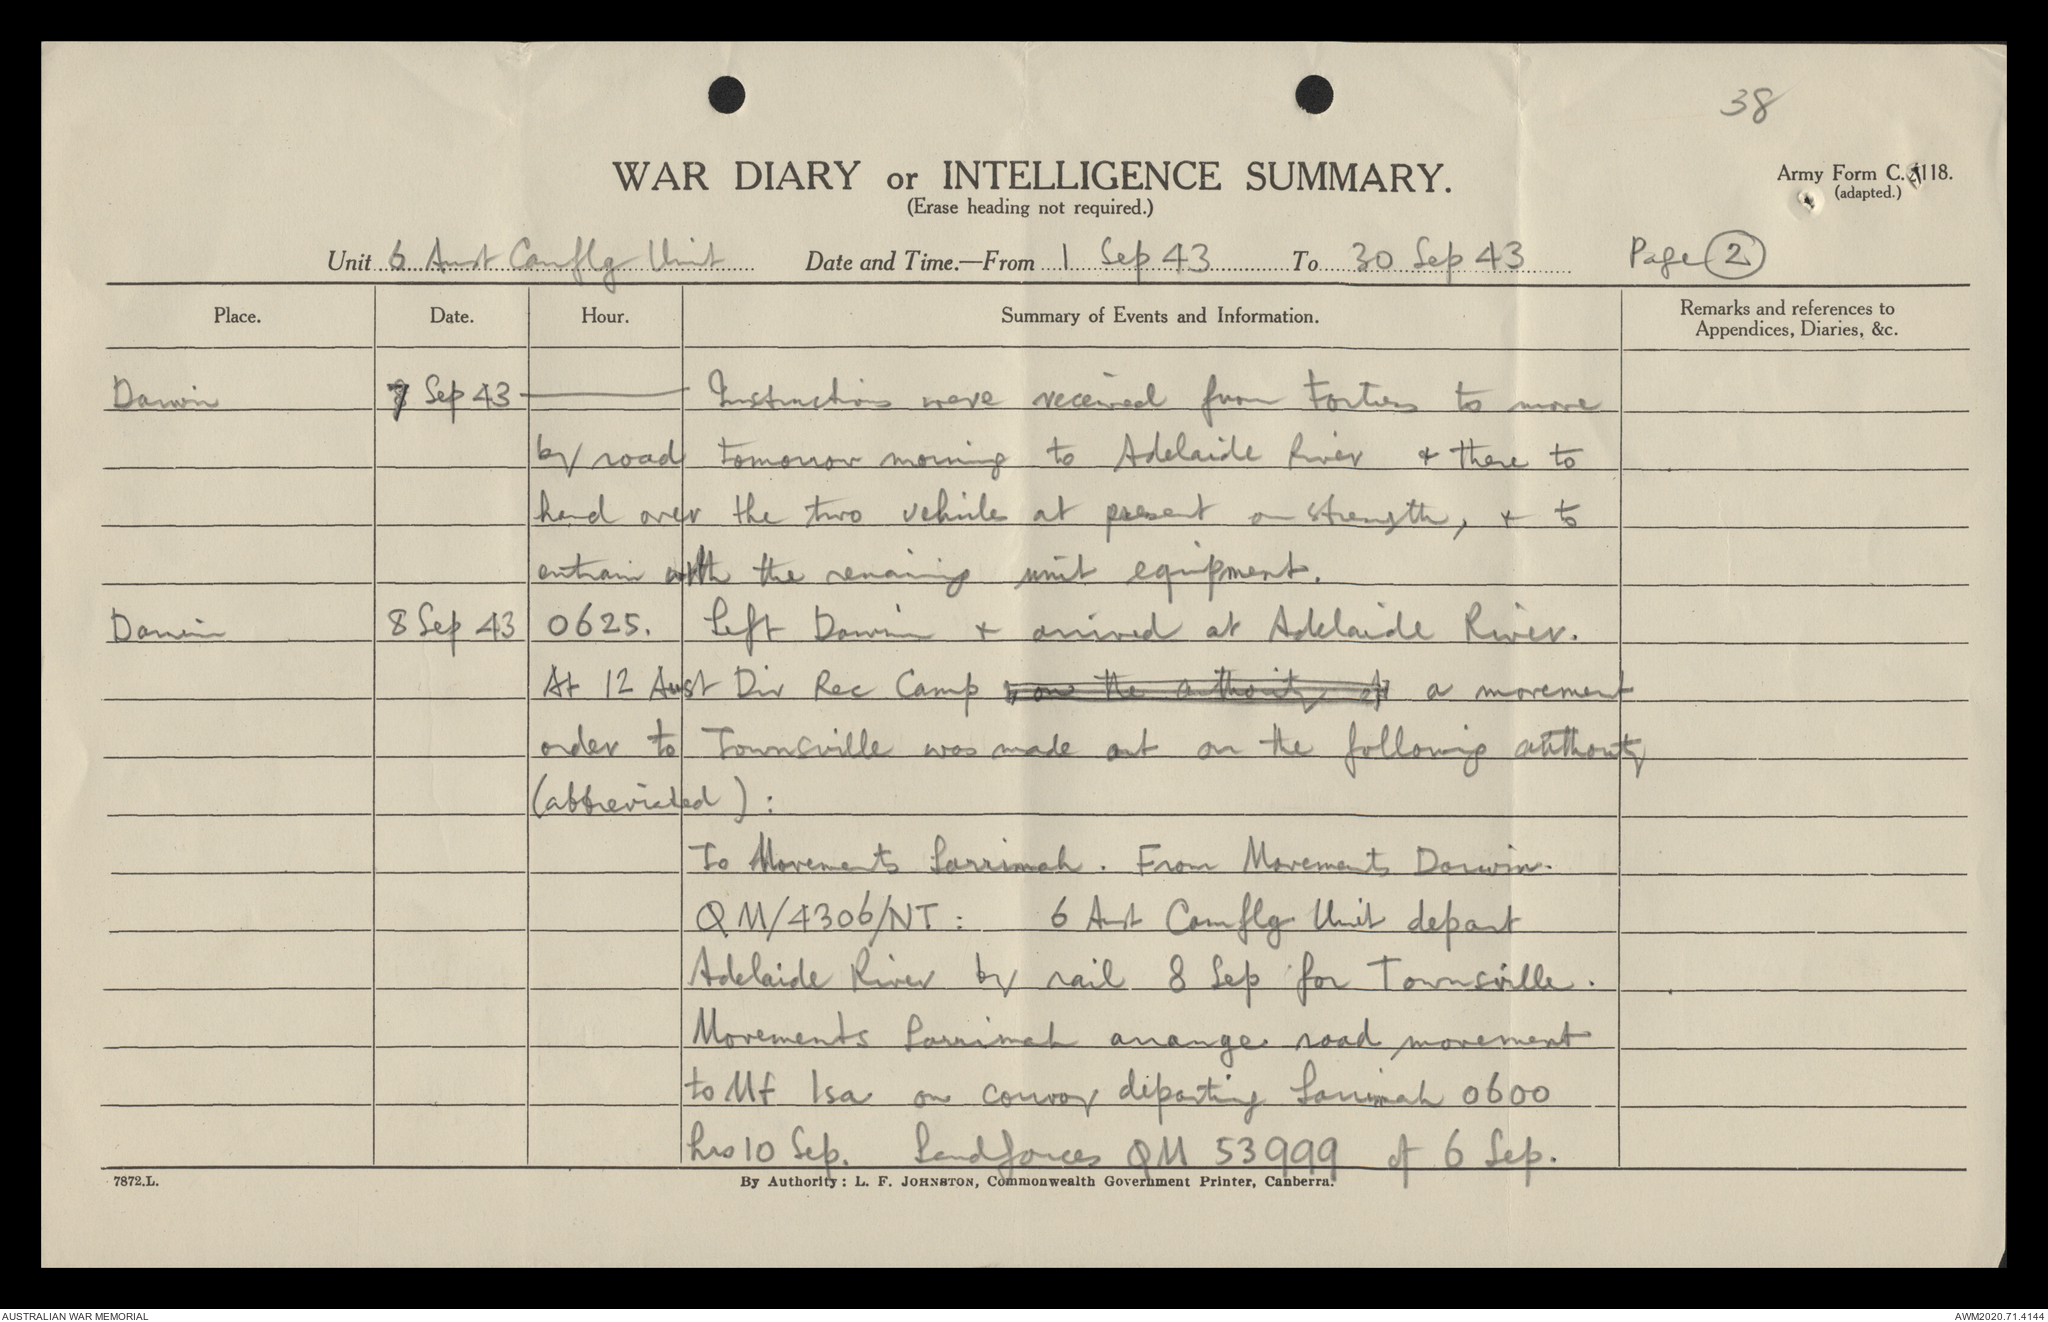 38
WAR DIARY or INTELLIGENCE SUMMARY.
(Erase heading not required.)
Army Form C. 2118.
(adapted.)
Unit 6 Aust Camflg Unit Date and Time.—From 1 Sep 43 To 30 Sep 43 Page 2
Place. Date. Hour. Summary of Events and Information. Remarks and references to
Appendices, Diaries, &c.
Darwin 7 Sep 43 — Instructions were received from Fortress to move
by road tomorrow morning to Adelaide River & there to
hand over the two vehicles at present on strength, & to
entrain with the remaining unit equipment.
Darwin 8 Sep 43 0625. Left Darwin & arrived at Adelaide River.
At 12 Aust Div Rec Camp on the authority of a movement
order to Townsville was made out on the following authority
(abbreviated):
To Movements Larrimah. From Movements Darwin.
QM/4306/NT: 6 Aust Camflg Unit depart
Adelaide River by rail 8 Sep for Townsville.
Movements Larrimah arrange road movement
to Mt Isa on convoy departing Larrimah 0600
hrs 10 Sep. Landforces QM 53999 of 6 Sep.
7872.L. By Authority: L. F. JOHNSTON, Commonwealth Government Printer, Canberra.
AUSTRALIAN WAR MEMORIAL AWM2020.71.4144